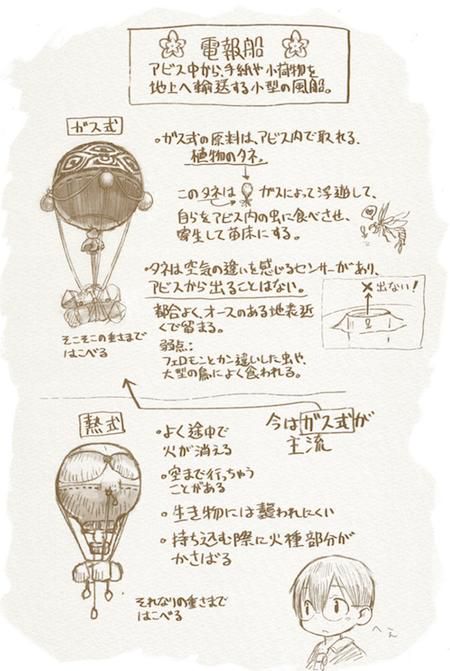 電報船
アビス中から、手紙や小荷物を
地上へ輸送する小型の風船。
ガス式
・ガス式の原料は、アビス内で取れる、
植物のタネ。
このタネは ガスによって浮遊して、
自らをアビス内の虫に食べさせ、
寄生して苗床にする。
・タネは空気の違いを感じるセンサーがあり、
アビスから出ることはない。
×出ない!
都合よく、オースのある地表近
くで留まる。
弱点:
フェロモンとカン違いした虫や、
大型の鳥によく食われる。
そこそこの重さまで
はこべる
熱式
今はガス式が
主流
・よく途中で
火が消える
・空まで行っちゃう
ことがある
・生き物には襲われにくい
・持ち込む際に火種部分が
かさばる
それなりの重さまで
はこべる
へぇ